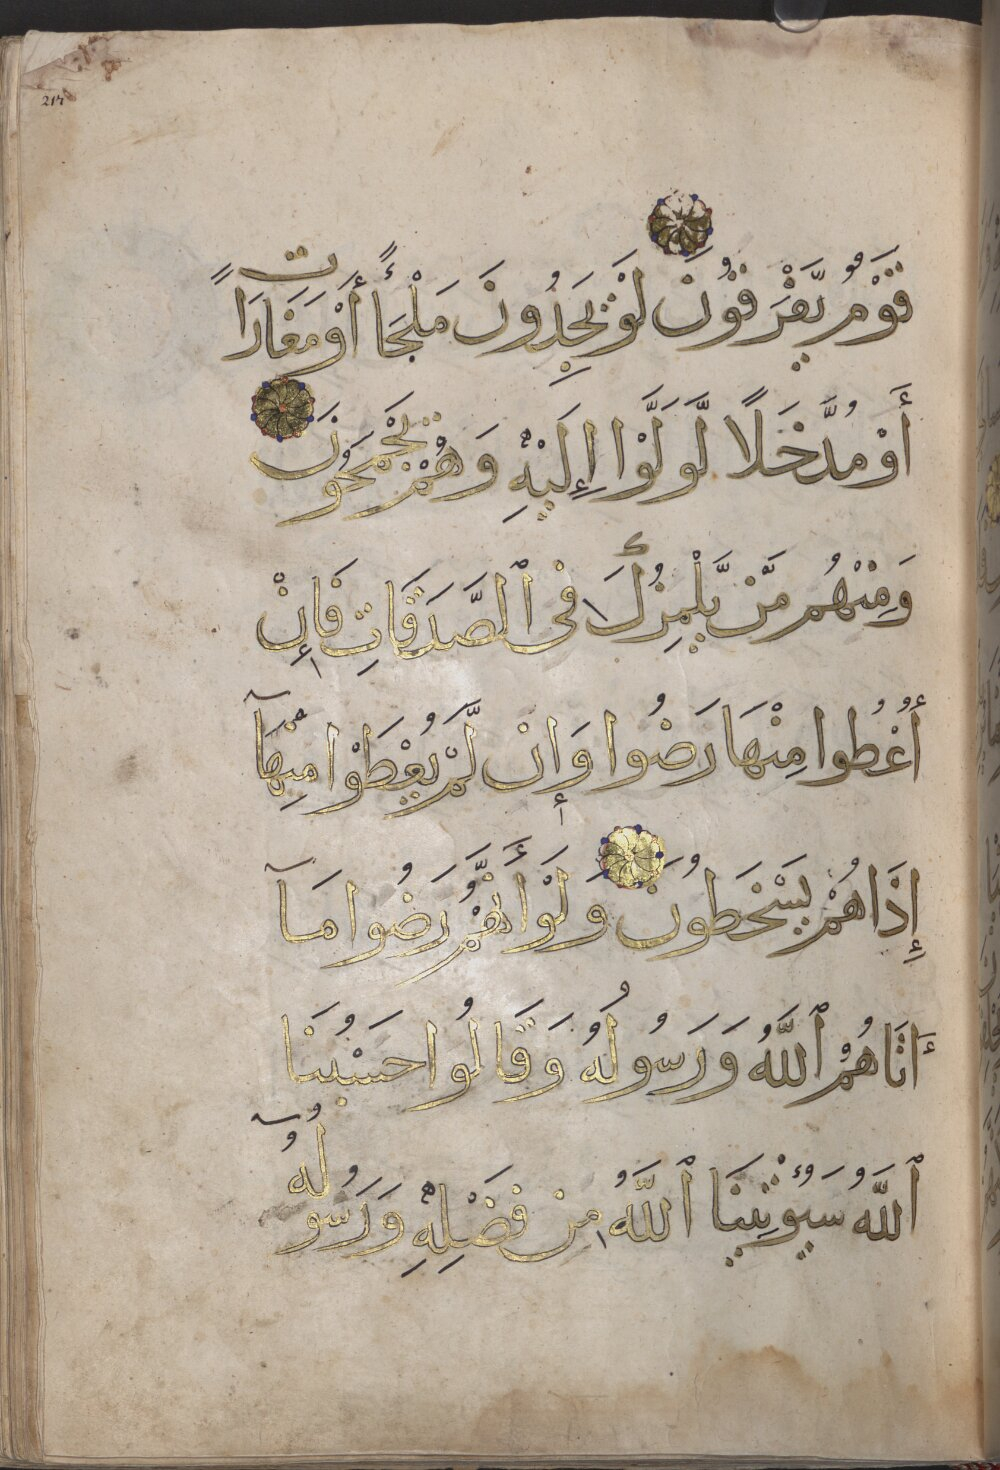 214
قَوْمٌ يَّفْرَقُونَ لَوْ يَجِدُونَ مَلْجَأً أَوْ مَغَارَاتٍ
أَوْ مُدَّخَلًا لَّوَلَّوْا إِلَيْهِ وَهُمْ يَجْمَحُونَ
وَمِنْهُم مَّن يَلْمِزُكَ فِى ٱلصَّدَقَاتِ فَإِنْ
أُعْطُوا مِنْهَا رَضُوا وَإِن لَّمْ يُعْطَوْا مِنْهَآ
إِذَا هُمْ يَسْخَطُونَ وَلَوْ أَنَّهُمْ رَضُوا مَآ
أَتَاهُمُ ٱللَّهُ وَرَسُولُهُ وَقَالُوا حَسْبُنَا
ٱللَّهُ سَيُؤْتِينَا ٱللَّهُ مِن فَضْلِهِ وَرَسُولُهُٓ